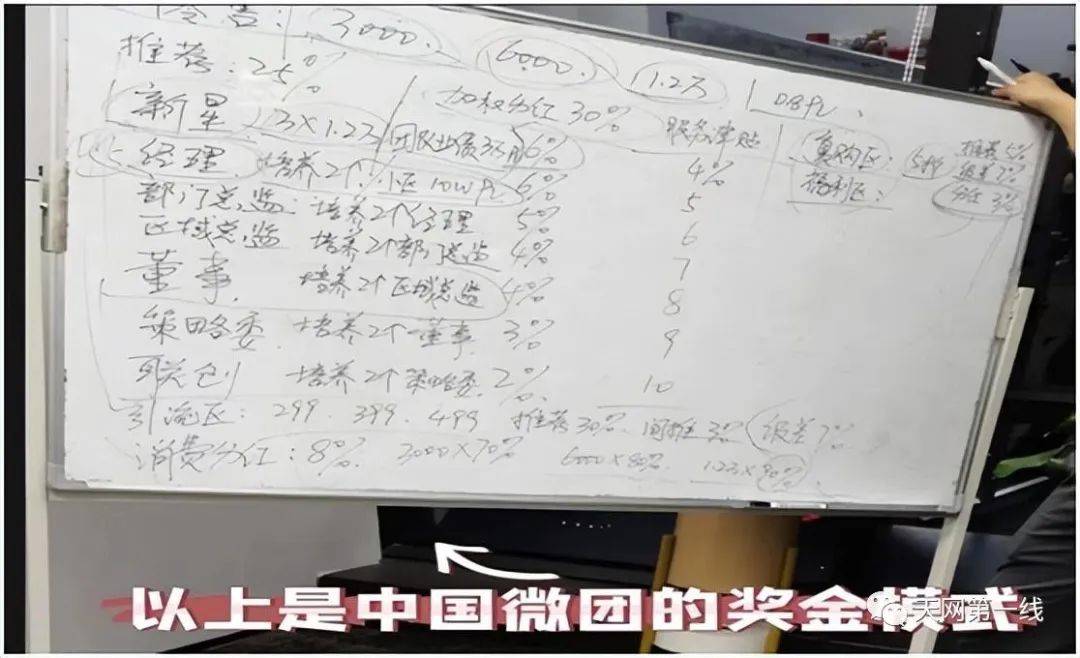 零售: 3000. 6000. 1.2万 0.8PV.
推荐: 25% 加权分红 30% 服务津贴
新星 3×1.2万 团队业绩3万 6% 4%
经理. 培养2个. 小区10W PV 6% 5
部门总监: 培养2个经理 5% 6
区域总监 培养2个部门总监 4% 7
董事. 培养2个区域总监 4% 8
策略委. 培养2个董事. 3% 9
联创 培养2个策略委. 2% 10
复购区: 5折 推荐5%
级差7%
福利区: 分红3%
引流区: 299. 399. 499 推荐30%. 间推3% 级差7%
消费分红: 8%. 3000×70% 6000×80%. 1.2万×90%
以上是中国微团的奖金模式
天网第一线